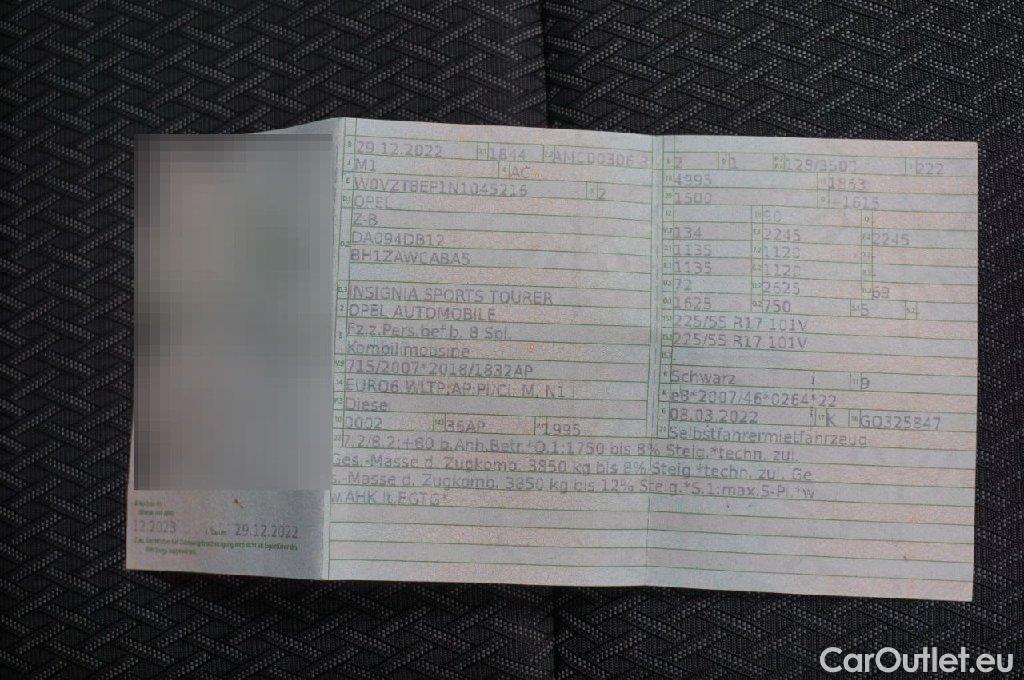 29.12.2022 1844 AMC00306 3
M1 AC
W0VZT8EP1N1045216 2
OPEL
Z-B
DA094DB12
BH1ZAWCABA5
INSIGNIA SPORTS TOURER
OPEL AUTOMOBILE
Fz.z.Pers.bef.b. 8 Spl.
Kombilimousine
715/2007*2018/1832AP
EURO6 WLTP;AP;PI/CI; M, N1 I
Diesel
0002 36AP 1995
2 1 129/3500 222
4995 1863
1500 -1615
134 2245 2245
1135 1120
1135 1120
72 2625 69
1625 750 5
225/55 R17 101V
225/55 R17 101V
Schwarz 9
e8*2007/46*0264*22
08.03.2022 K GO325847
Selbstfahrermietfahrzeug
7.2/8.2:+80 b.Anh.Betr.*O.1:1750 bis 8% Steig.*techn. zul.
Ges.-Masse d. Zugkomb. 3850 kg bis 8% Steig.*techn. zul. Ge
s.-Masse d. Zugkomb. 3850 kg bis 12% Steig.*S.1:max.5-Pl.*w
w.AHK lt.EGTG*
12.2023 29.12.2022
CarOutlet.eu